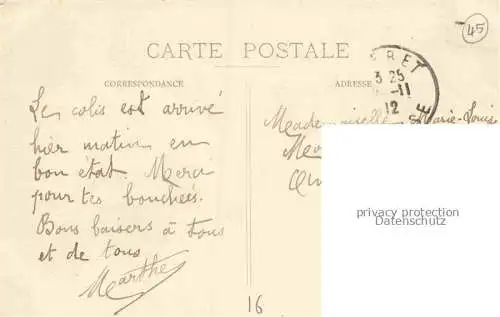 45
CARTE POSTALE
CORRESPONDANCE
ADRESSE
RET
3 25
-11
12
Le colis est arrivé
hier matin en
bon état. Merci
pour tes bouchées.
Bons baisers à tous
et de tous
Marthe
Mademoiselle Marie-Louis
privacy protection
Datenschutz
16